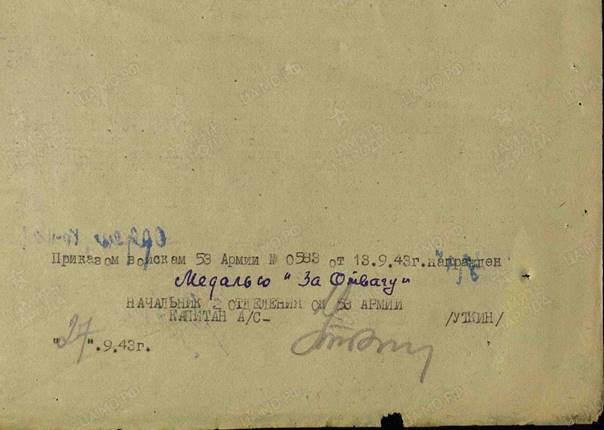 Приказом войскам 53 Армии № 0583 от 13.9.43г. награжден
Медалью "За Отвагу"
НАЧАЛЬНИК 2 ОТДЕЛЕНИЯ ОК 53 АРМИИ
КАПИТАН А/С- /УТКИН/
"27".9.43г.